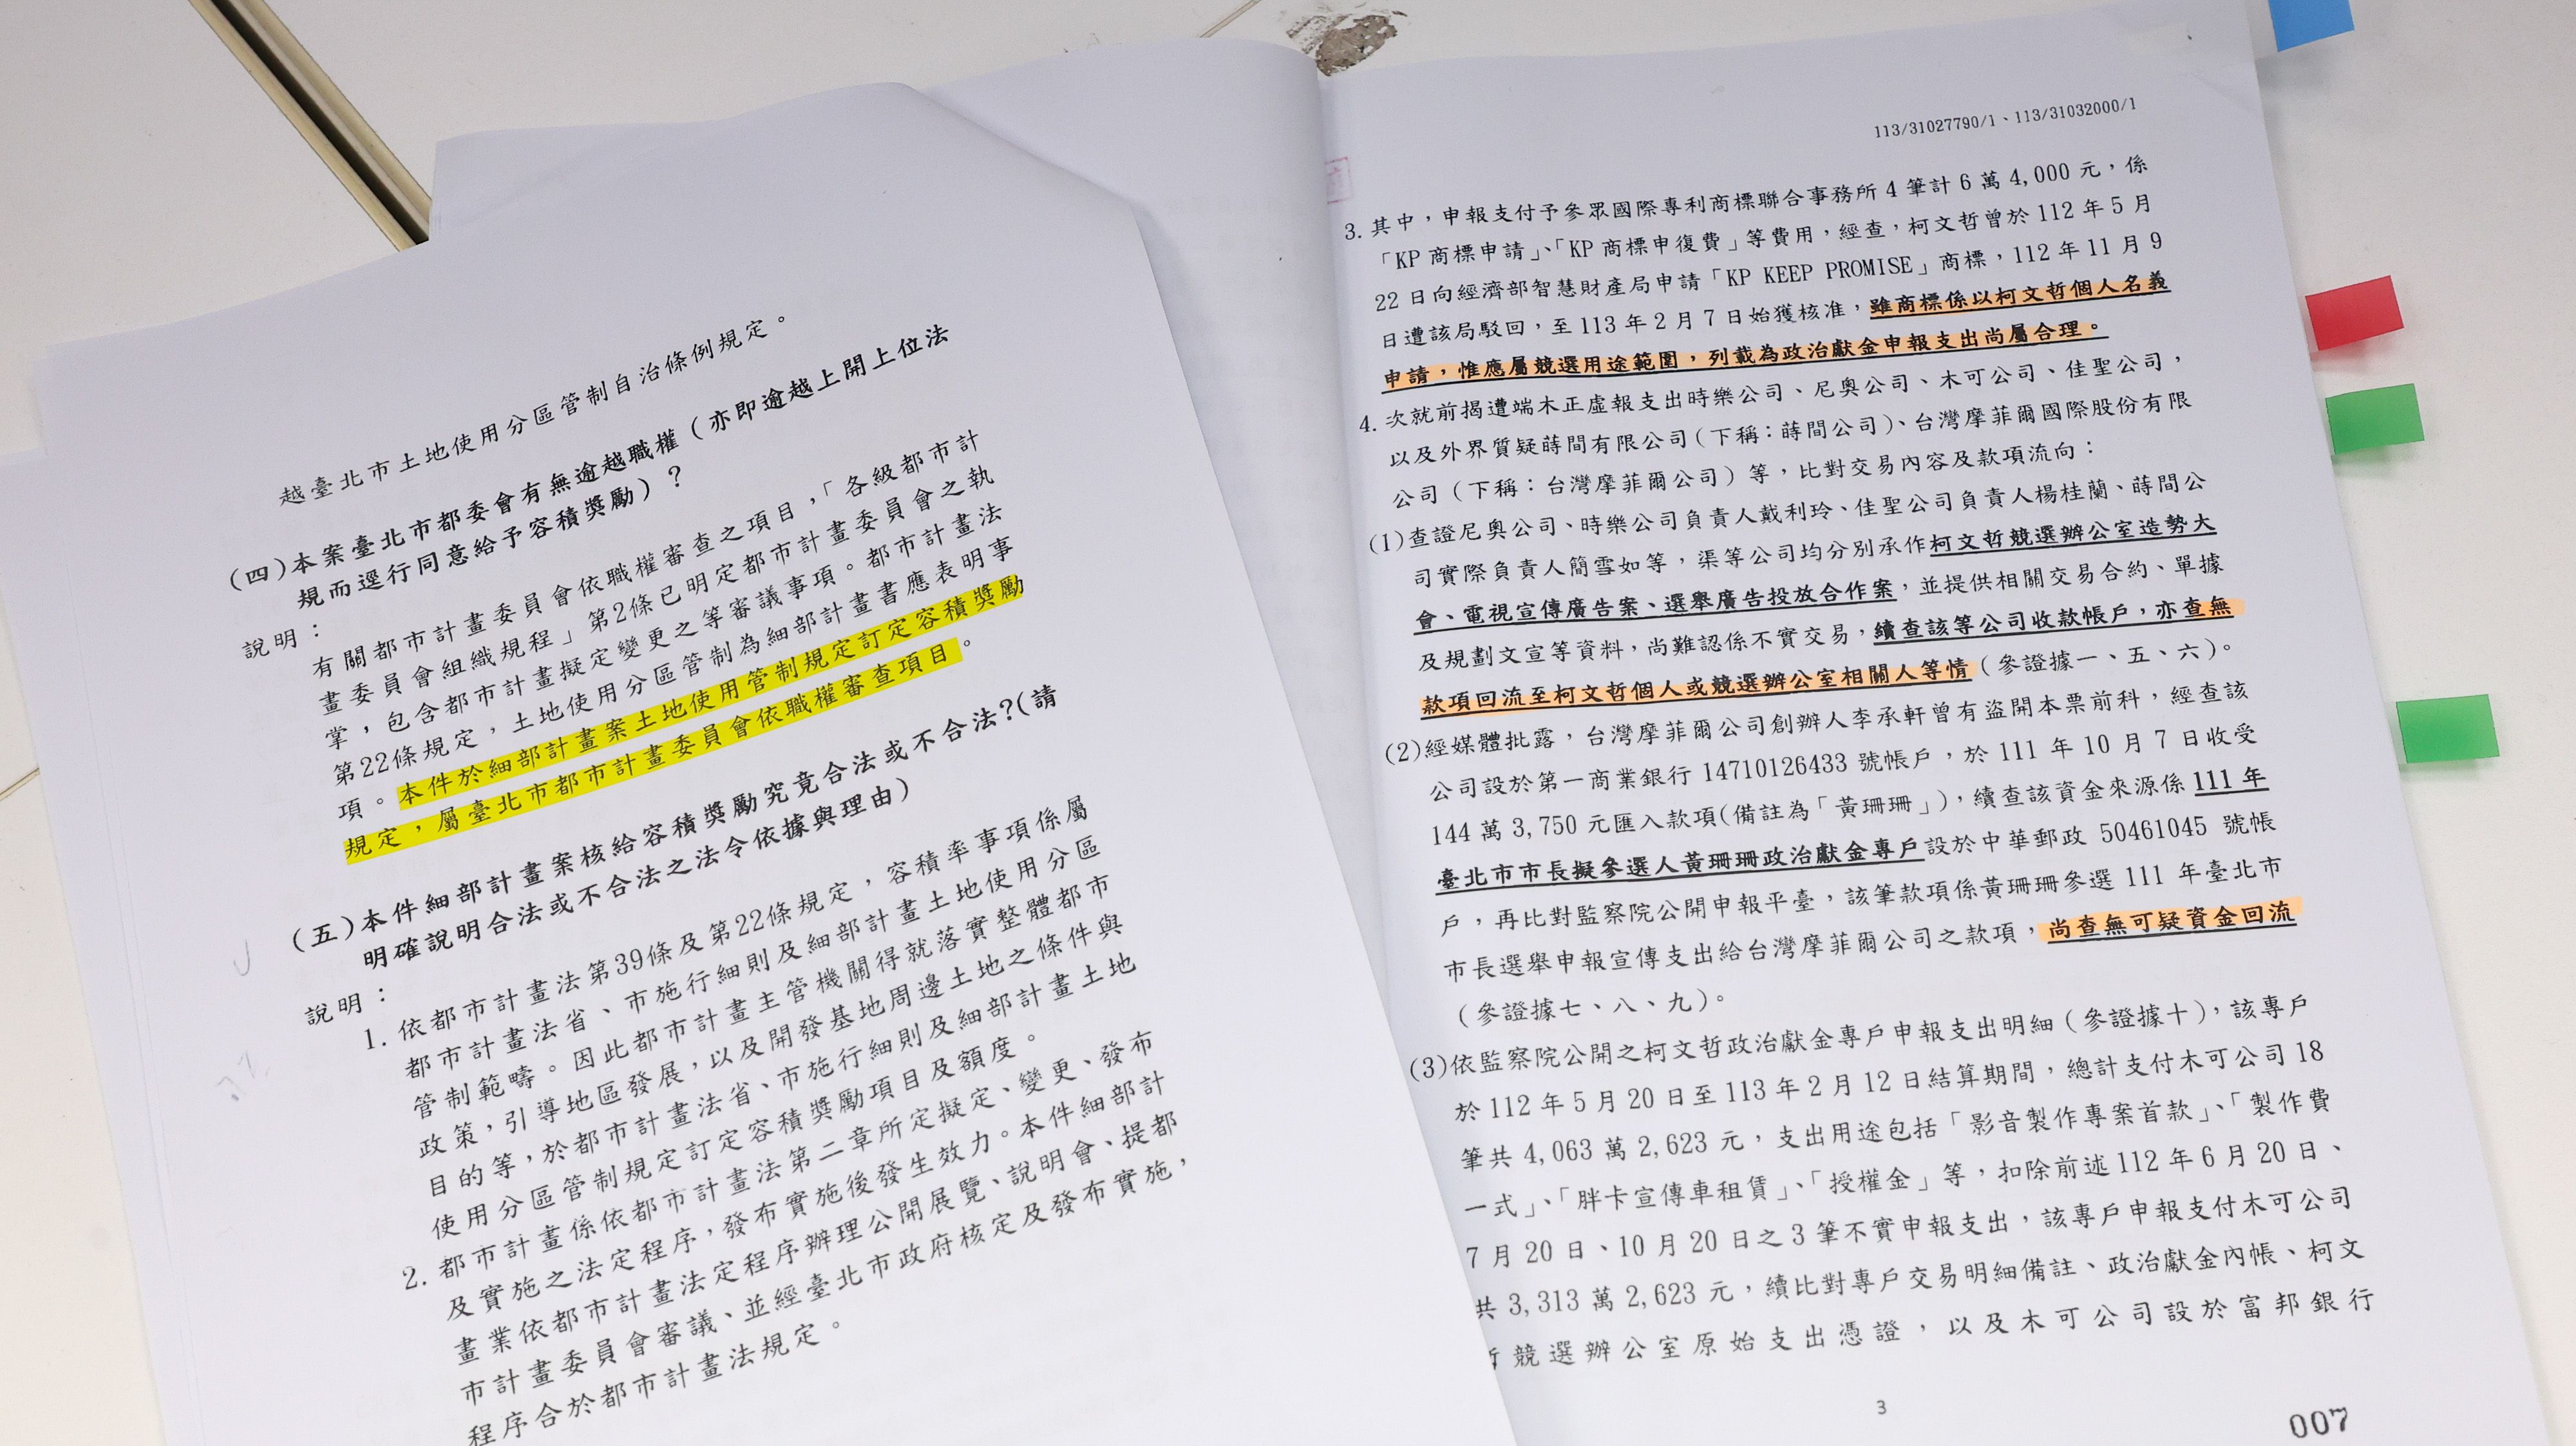 越臺北市土地使用分區管制自治條例規定。
(四)本案臺北市都委會有無逾越職權(亦即逾越上開上位法
規而逕行同意給予容積獎勵)?
說明:
有關都市計畫委員會依職權審查之項目,「各級都市計
畫委員會組織規程」第2條已明定都市計畫委員會之執
掌,包含都市計畫擬定變更之等審議事項。都市計畫法
第22條規定,土地使用分區管制為細部計畫書應表明事
項。本件於細部計畫案土地使用管制規定訂定容積獎勵
規定,屬臺北市都市計畫委員會依職權審查項目。
(五)本件細部計畫案核給容積獎勵究竟合法或不合法?(請
明確說明合法或不合法之法令依據與理由)
說明:
1. 依都市計畫法第39條及第22條規定,容積率事項係屬
都市計畫法省、市施行細則及細部計畫土地使用分區
管制範疇。因此都市計畫主管機關得就落實整體都市
政策,引導地區發展,以及開發基地周邊土地之條件與
目的等,於都市計畫法省、市施行細則及細部計畫土地
使用分區管制規定訂定容積獎勵項目及額度。
2. 都市計畫係依都市計畫法第二章所定擬定、變更、發布
及實施之法定程序,發布實施後發生效力。本件細部計
畫業依都市計畫法定程序辦理公開展覽、說明會、提都
市計畫委員會審議、並經臺北市政府核定及發布實施,
程序合於都市計畫法規定。
113/31027790/1、113/31032000/1
3. 其中,申報支付予參眾國際專利商標聯合事務所 4 筆計 6 萬 4,000 元,係
「KP 商標申請」、「KP 商標申復費」等費用,經查,柯文哲曾於 112 年 5 月
22 日向經濟部智慧財產局申請「KP KEEP PROMISE」商標,112 年 11 月 9
日遭該局駁回,至 113 年 2 月 7 日始獲核准,雖商標係以柯文哲個人名義
申請,惟應屬競選用途範圍,列載為政治獻金申報支出尚屬合理。
4. 次就前揭遭端木正虛報支出時樂公司、尼奧公司、木可公司、佳聖公司,
以及外界質疑蒔間有限公司(下稱:蒔間公司)、台灣摩菲爾國際股份有限
公司(下稱:台灣摩菲爾公司)等,比對交易內容及款項流向:
(1)查證尼奧公司、時樂公司負責人戴利玲、佳聖公司負責人楊桂蘭、蒔間公
司實際負責人簡雪如等,渠等公司均分別承作柯文哲競選辦公室造勢大
會、電視宣傳廣告案、選舉廣告投放合作案,並提供相關交易合約、單據
及規劃文宣等資料,尚難認係不實交易,續查該等公司收款帳戶,亦查無
款項回流至柯文哲個人或競選辦公室相關人等情(參證據一、五、六)。
(2)經媒體批露,台灣摩菲爾公司創辦人李承軒曾有盜開本票前科,經查該
公司設於第一商業銀行 14710126433 號帳戶,於 111 年 10 月 7 日收受
144 萬 3,750 元匯入款項(備註為「黃珊珊」),續查該資金來源係 111 年
臺北市市長擬參選人黃珊珊政治獻金專戶設於中華郵政 50461045 號帳
戶,再比對監察院公開申報平臺,該筆款項係黃珊珊參選 111 年臺北市
市長選舉申報宣傳支出給台灣摩菲爾公司之款項,尚查無可疑資金回流
(參證據七、八、九)。
(3)依監察院公開之柯文哲政治獻金專戶申報支出明細(參證據十),該專戶
於 112 年 5 月 20 日至 113 年 2 月 12 日結算期間,總計支付木可公司 18
筆共 4,063 萬 2,623 元,支出用途包括「影音製作專案首款」、「製作費
一式」、「胖卡宣傳車租賃」、「授權金」等,扣除前述 112 年 6 月 20 日、
7 月 20 日、10 月 20 日之 3 筆不實申報支出,該專戶申報支付木可公司
共 3,313 萬 2,623 元,續比對專戶交易明細備註、政治獻金內帳、柯文
哲競選辦公室原始支出憑證,以及木可公司設於富邦銀行
3
007